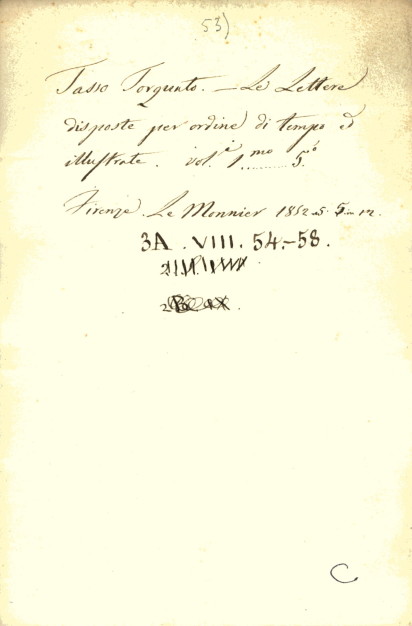 53)
Tasso Torquato. — Le Lettere
disposte per ordine di tempo ed
illustrate. vol.i 1mo ........ 5.o
Firenze. Le Monnier 1852-5. 5. in 12.
3A . VIII. 54.-58.
C